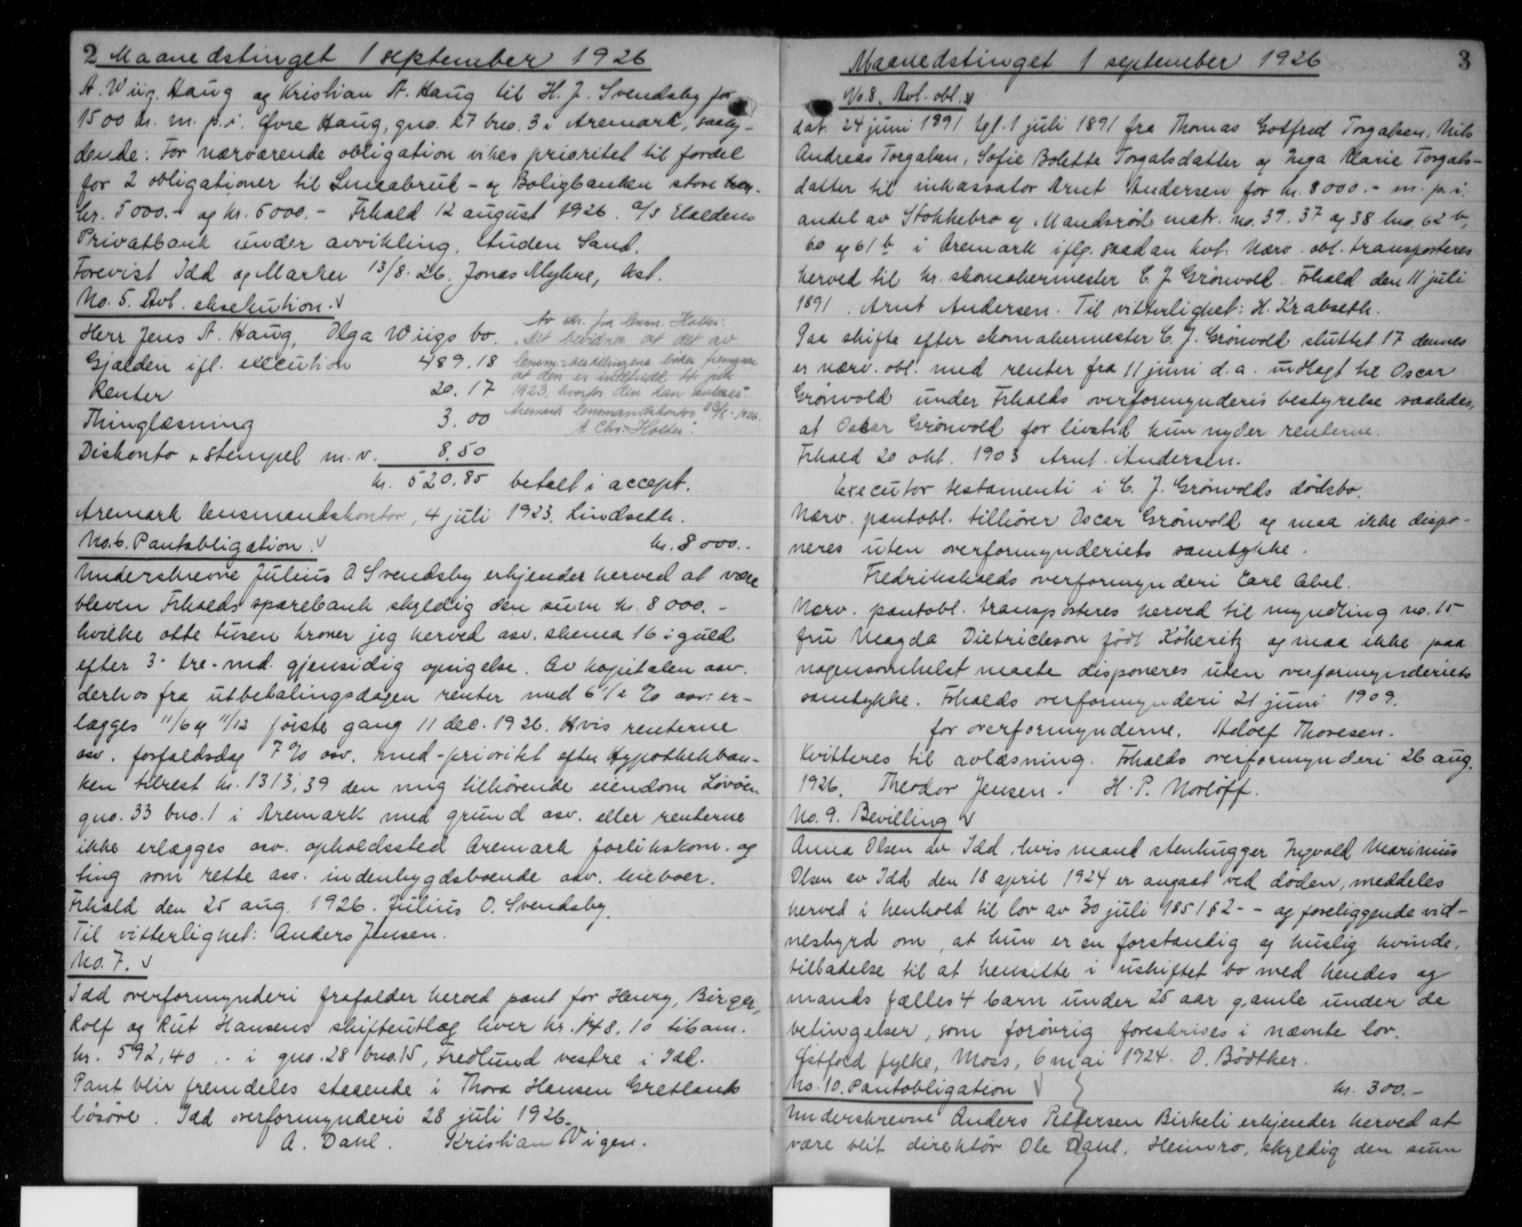 2 Maanedstinget 1 september 1926
A. Wiig Haug og Kristian A. Haug til H. J. Svendsby for
1500 kr. m. p. i. Øvre Haug, gno. 27 bno. 3 i Aremark, saaly-
dende: For nærværende obligation vikes prioritet til fordel
for 2 obligationer til Smaabruk- og Boligbanken store
kr. 5000.- og kr. 5000.- Frhald 12 august 1926. A/S Haldens
Privatbank under avvikling, Luden Sand,
Forevist Idd og Marker 13/8. 26. Jonas Myhre, Ast.
No. 5. Avl. eksekution. v
Herr Jens A. Haug, Olga Wiigs bo.
Gjælden ifl. execution 489.18
Renter 20.17
Thinglæsning 3.00
Diskonto & stempel m. v. 8,50
kr. 520.85 betalt i accept.
Av skr. fra lensm. Holter:
"Det bevidnes at det av
lensm. bestillingens bøker fremgaar
at den er indfridd
1923, hvorfor den kan avlæses".
Aremark lensmandskontor 23/8 - 1926.
A. Chr. Holter".
Aremark lensmandskontor, 4 juli 1923. Lindseth.
No. 6. Pantobligation. v kr. 8000.-
Underskrevne Julius O Svendsby erkjender herved at være
bleven Frhalds sparebank skyldig den sum kr. 8000.-
hvilke otte tusen kroner jeg herved osv. skema 16 i guld
efter 3- tre- md. gjensidig opsigelse. Av kapitalen osv.
derhos fra utbetalingsdagen renter med 6 1/2 % osv: er-
lægges 11/6 og 11/12 første gang 11 dec. 1926. Hvis renterne
osv. forfaldsdag 7 % osv. med-prioritet efter Hypothekban-
ken tilrest kr. 1313,39 den mig tilhörende eiendom Lövöen
gno. 33 bno. 1 i Aremark med grund osv. eller renterne
ikke erlægges osv. opholdssted Aremark forlikskom. og
ting som rette osv. indenbygdsboende osv. leieboer.
Frhald den 25 aug. 1926. Julius O. Svendsby.
Til vitterlighet: Anders Jensen.
No. 7. v
Idd overformynderi frafalder herved pant for Henry, Birger,
Rolf og Rut Hansens skifteutlæg hver kr. 148.10 tilsam.
kr. 592,40 .- i gno. 28 bno. 15, Fredlund vestre i Idd.
Pant blir fremdeles staaende i Thora Hansen Gretlands
lösöre. Idd overformynderi 28 juli 1926.
A. Dahl. Kristian Vigen.
Maanedstinget 1 september 1926 3
No. 8. Avl. obl. v
dat. 24 juni 1891 tgl. 1 juli 1891 fra Thomas Gotfred Torgalsen, Nils
Andreas Torgalsen, Sofie Bolette Torgalsdatter og Inga Marie Torgals-
datter til inkassator Arnt Andersen for kr. 8000.- m. p. i.
andel av Stokkebro og Mandsröd matr. no. 39, 37 og 38 bno. 62 b,
60 og 61 b i Aremark iflg. saadan hvl. Nærv. obl. transporteres
herved til hr. skomakermester C. J. Grönvold. Frhald den 11 juli
1891. Arnt Andersen. Til vitterlighet: H. Krabseth.
Paa skifte efter skomakermester C. J. Grönvold sluttet 17 dennes
er nærv. obl. med renter fra 11 juni d. a. utlagt til Oscar
Grönvold under Frhalds overformynderis bestyrelse saaledes,
at Oscar Grönvold for livstid kun nyder renterne.
Frhald 20 okt. 1903 Arnt. Andersen.
Executor testamenti i C. J. Grönvolds dödsbo.
Nærv. pantobl. tilhörer Oscar Grönvold og maa ikke dispo-
neres uten overformynderiets samtykke.
Fredrikshalds overformynderi Carl Abel.
Nærv. pantobl. transporteres herved til myndling no. 15
fru Magda Dietrichson födt Köheritz og maa ikke paa
nogensomhelst maate disponeres uten overformynderiets
samtykke. Frhalds overformynderi 21 juni 1909.
for overformynderne. Adolf Thoresen.
Kvitteres til avlæsning. Frhalds overformynderi 26 aug.
1926. Theodor Jensen. H. P. Norlöff.
No. 9. Bevilling v
Anna Olsen av Idd, hvis mand stenhugger Ingvald Marinius
Olsen av Idd den 18 april 1924 er avgaat ved döden, meddeles
herved i henhold til lov av 30 juli 1851 § 2 - - og foreliggende vid-
nesbyrd om, at hun er en forstandig og huslig kvinde,
tilladelse til at hensitte i uskiftet bo med hendes og
mands fælles 4 barn under 25 aar gamle under de
betingelser, som forövrig foreskrives i nævnte lov.
Østfold fylke, Moss, 6 mai 1924. O. Bödtker.
No. 10. Pantobligation v kr. 300.-
Underskrevne Anders Pettersen Birkeli erkjender herved at
være blit direktör Ole Dahl, Heimro, skyldig den sum